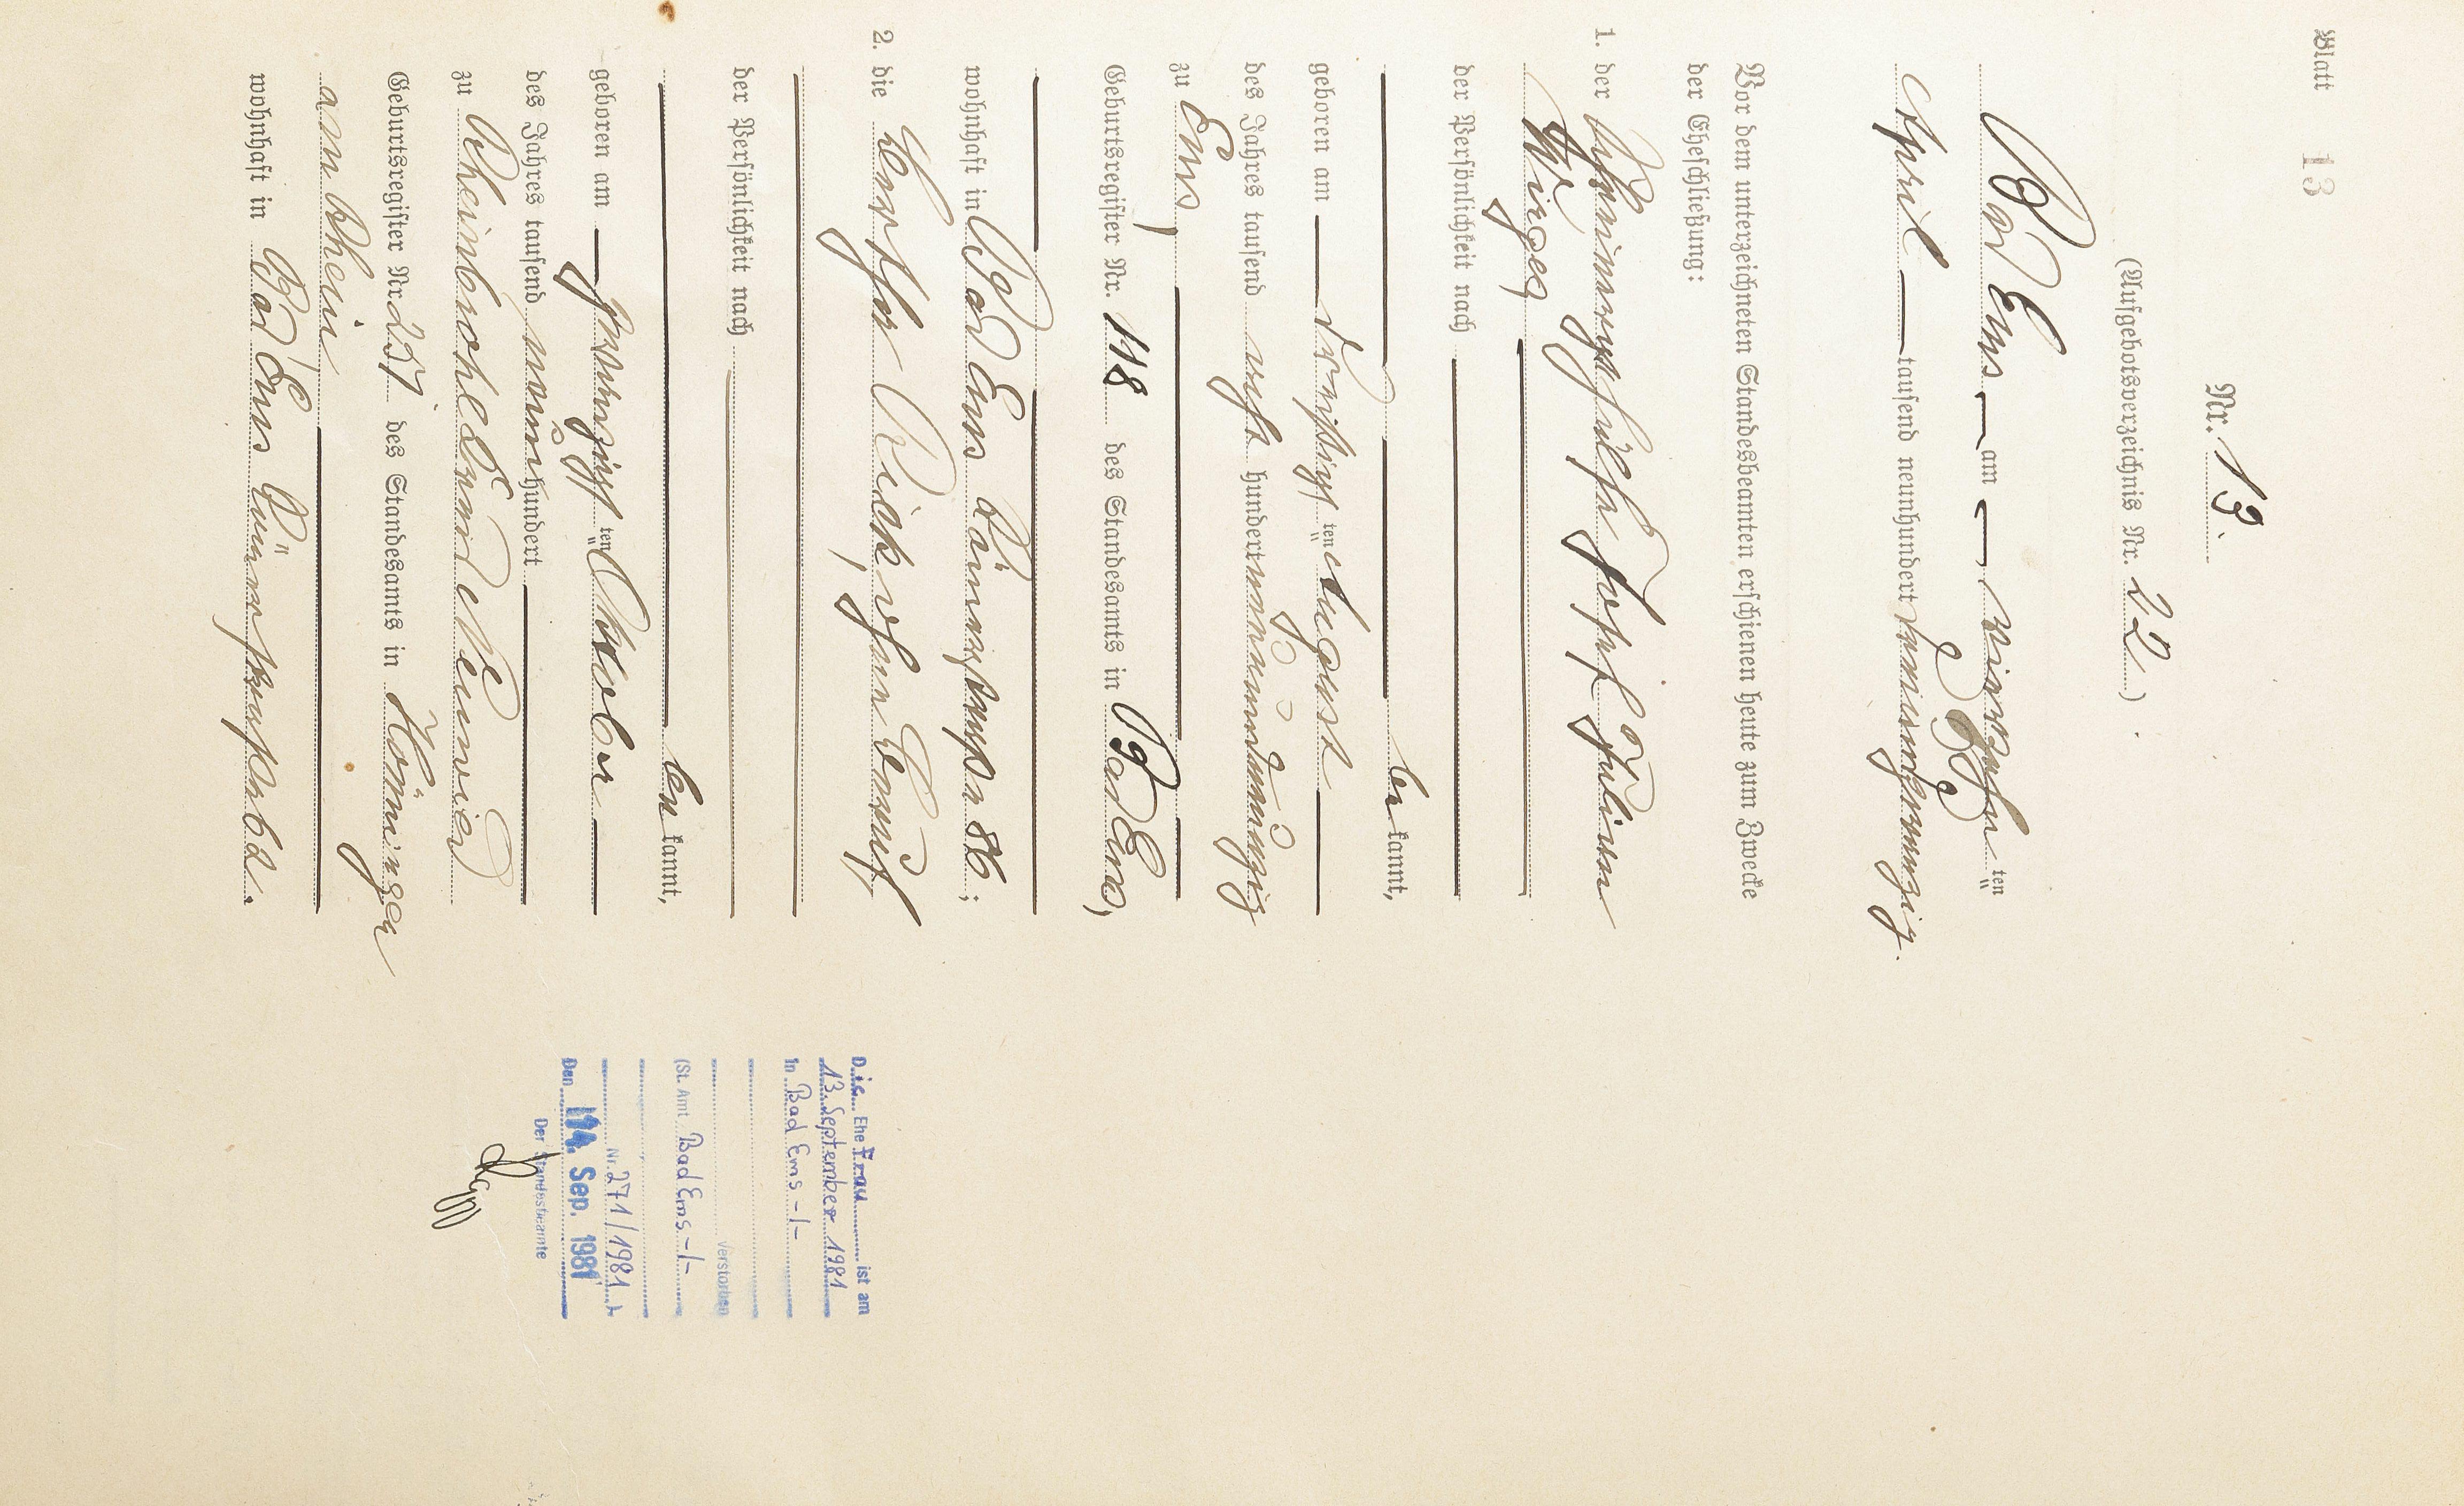 Blatt 13
Nr. 13.
(Aufgebotsverzeichnis Nr. 22)
Bad Ems am vierzehnten
April tausend neunhundert
Vor dem unterzeichneten Standesbeamten erschienen heute zum Zwecke
der Eheschließung:
1. der Josef Julius
der Persönlichkeit nach
bekannt,
geboren am dreißigsten August
des Jahres tausend acht hundert neunundneunzig
zu Ems,
Geburtsregister Nr. 118 des Standesamts in Bad Ems,
wohnhaft in Bad Ems Römerstraße 86;
2. die
der Persönlichkeit nach
bekannt,
geboren am zwanzigsten Oktober
des Jahres tausend neun hundert
zu Rheinbrohl Landkr. Neuwied
Geburtsregister Nr. 257 des Standesamts in Hönningen
am Rhein,
wohnhaft in Bad Ems Römerstraße 62.
Die Ehefrau ist am
13. September 1981
in Bad Ems -/-
verstorben
(St. Amt Bad Ems -/-
Nr. 271/1981 )
Den 14. Sep. 1981
Der Standesbeamte